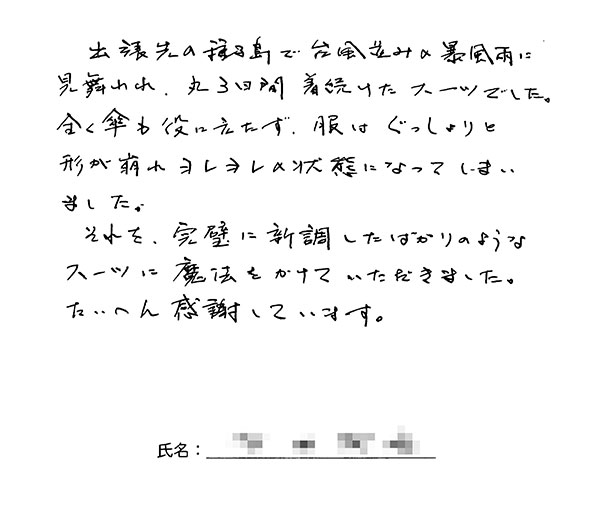 出張先の種子島で台風並みの暴風雨に
見舞われ、丸3日間着続けたスーツでした。
全く傘も役に立たず、服はぐっしょりと
形が崩れヨレヨレの状態になってしまい
ました。
それを、完璧に新調したばかりのような
スーツに魔法をかけていただきました。
たいへん感謝しています。
氏名：